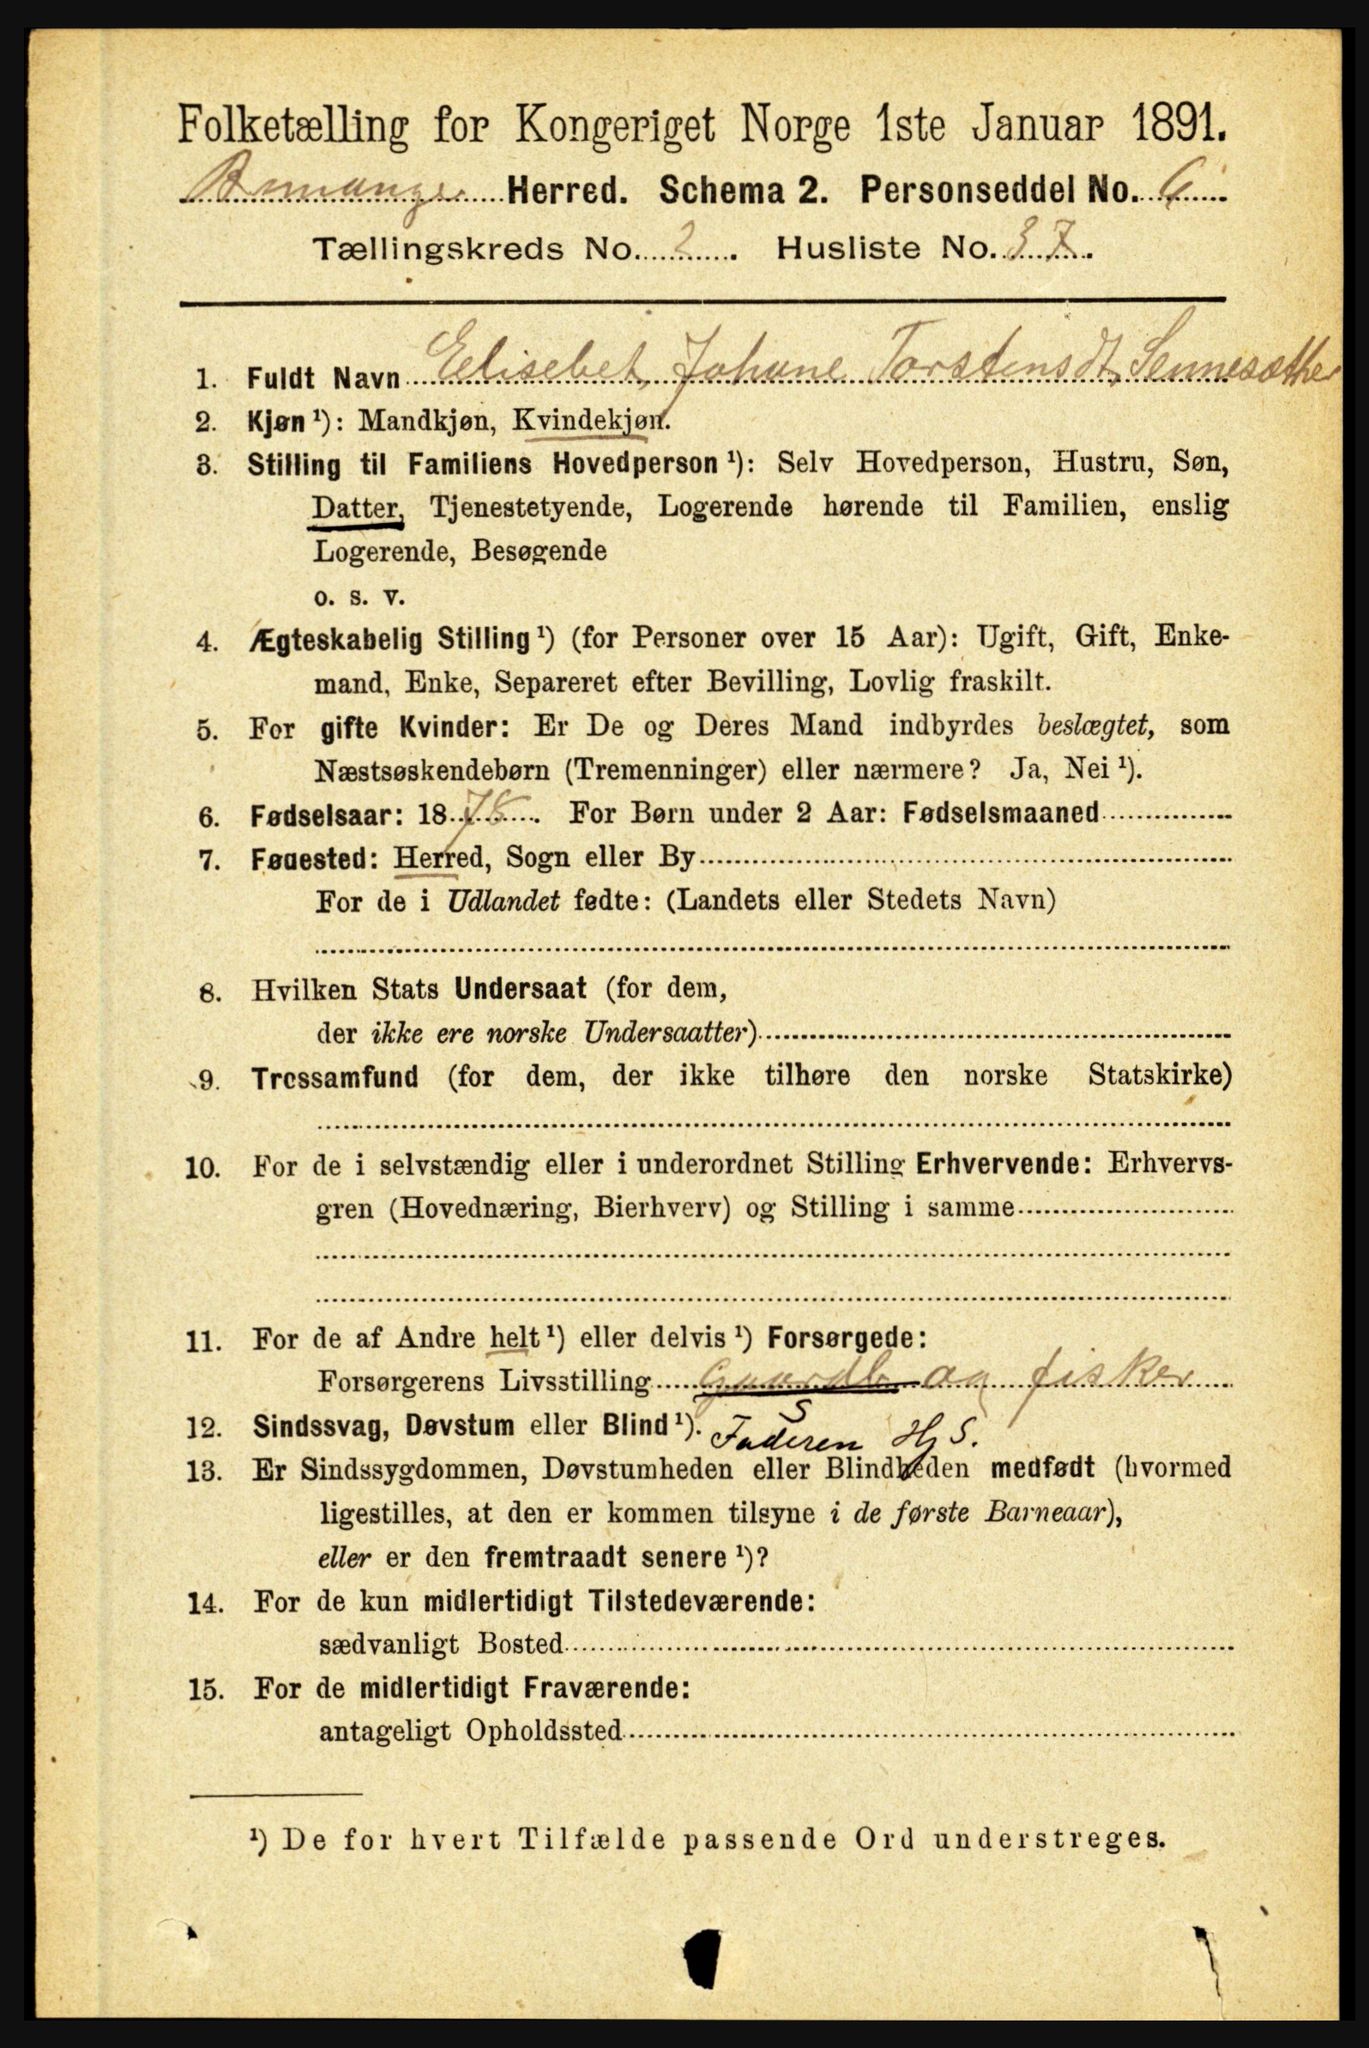 Folketælling for Kongeriget Norge 1ste Januar 1891.
Bremanger Herred. Schema 2. Personseddel No. 6
Tællingskreds No. 2. Husliste No. 37.
1. Fuldt Navn Eelisebet Johane Torstensdt. Sennesæther
2. Kjøn ¹): Mandkjøn, Kvindekjøn.
3. Stilling til Familiens Hovedperson ¹): Selv Hovedperson, Hustru, Søn,
Datter, Tjenestetyende, Logerende hørende til Familien, enslig
Logerende, Besøgende
o. s. v.
4. Ægteskabelig Stilling ¹) (for Personer over 15 Aar): Ugift, Gift, Enke-
mand, Enke, Separeret efter Bevilling, Lovlig fraskilt.
5. For gifte Kvinder: Er De og Deres Mand indbyrdes beslægtet, som
Næstsøskendebørn (Tremenninger) eller nærmere? Ja, Nei ¹).
6. Fødselsaar: 1878. For Børn under 2 Aar: Fødselsmaaned
7. Fødested: Herred, Sogn eller By
For de i Udlandet fødte: (Landets eller Stedets Navn)
8. Hvilken Stats Undersaat (for dem,
der ikke ere norske Undersaatter)
9. Trossamfund (for dem, der ikke tilhøre den norske Statskirke)
10. For de i selvstændig eller i underordnet Stilling Erhvervende: Erhvervs-
gren (Hovednæring, Bierhverv) og Stilling i samme
11. For de af Andre helt ¹) eller delvis ¹) Forsørgede:
Forsørgerens Livsstilling Gaardb og fisker
S
12. Sindssvag, Døvstum eller Blind ¹). Faderen Hj S.
13. Er Sindssygdommen, Døvstumheden eller Blindheden medfødt (hvormed
ligestilles, at den er kommen tilsyne i de første Barneaar),
eller er den fremtraadt senere ¹)?
14. For de kun midlertidigt Tilstedeværende:
sædvanligt Bosted
15. For de midlertidigt Fraværende:
antageligt Opholdssted
¹) De for hvert Tilfælde passende Ord understreges.